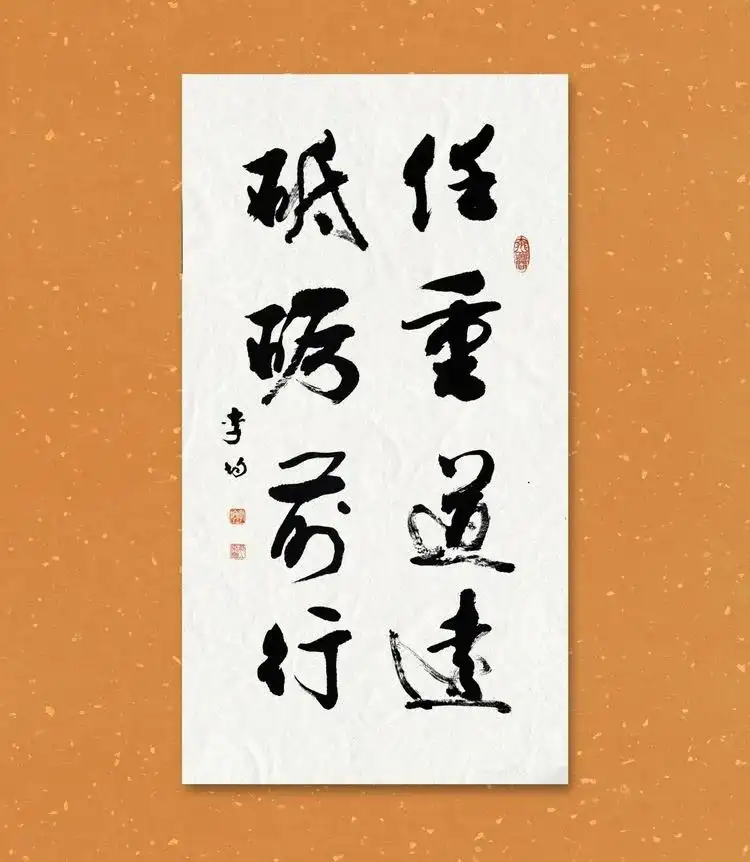 任重道远
砥砺前行
李均